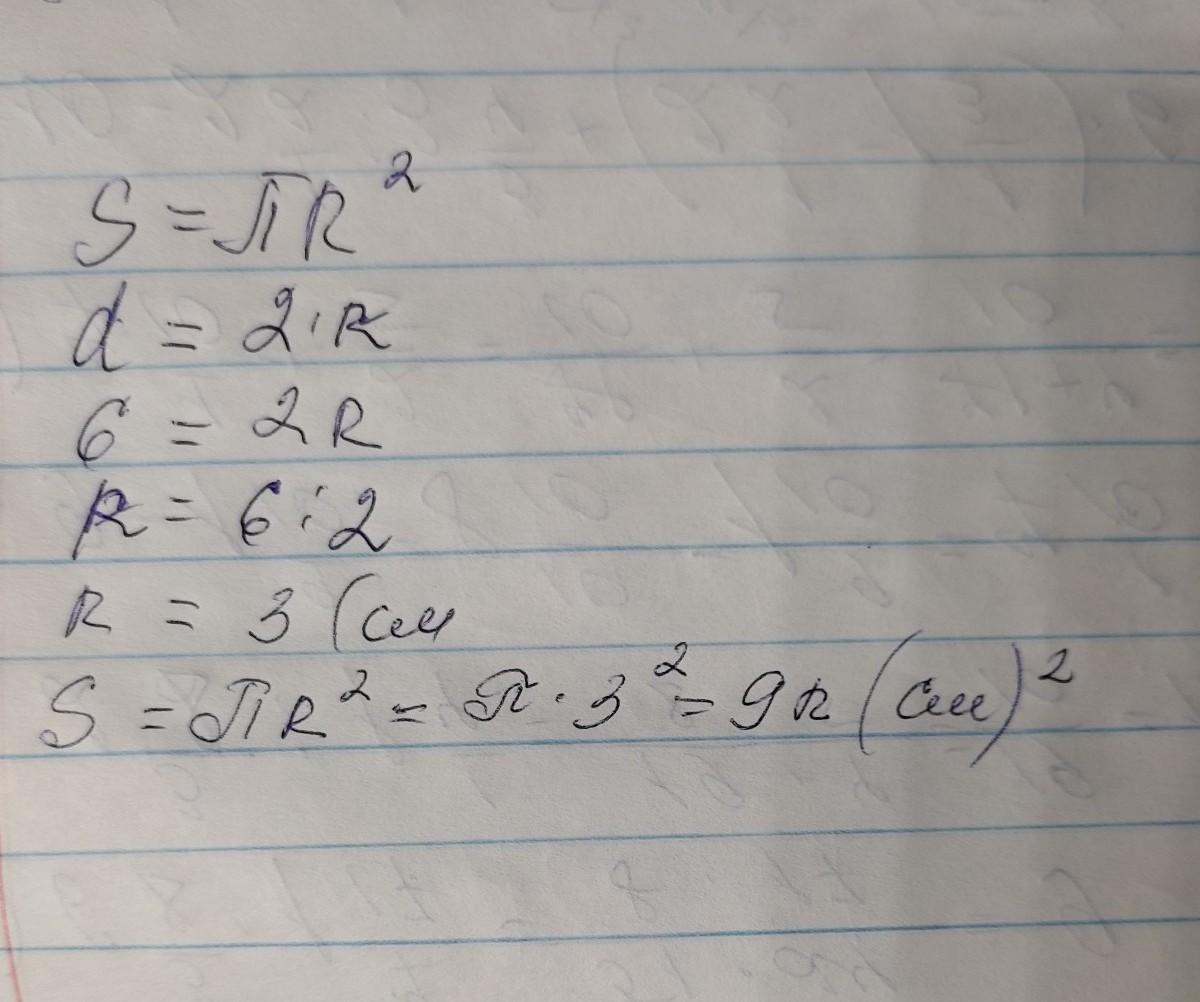 S = πR²
d = 2·R
6 = 2R
R = 6:2
R = 3 (см
S = πR² = π·3² = 9π (см)²